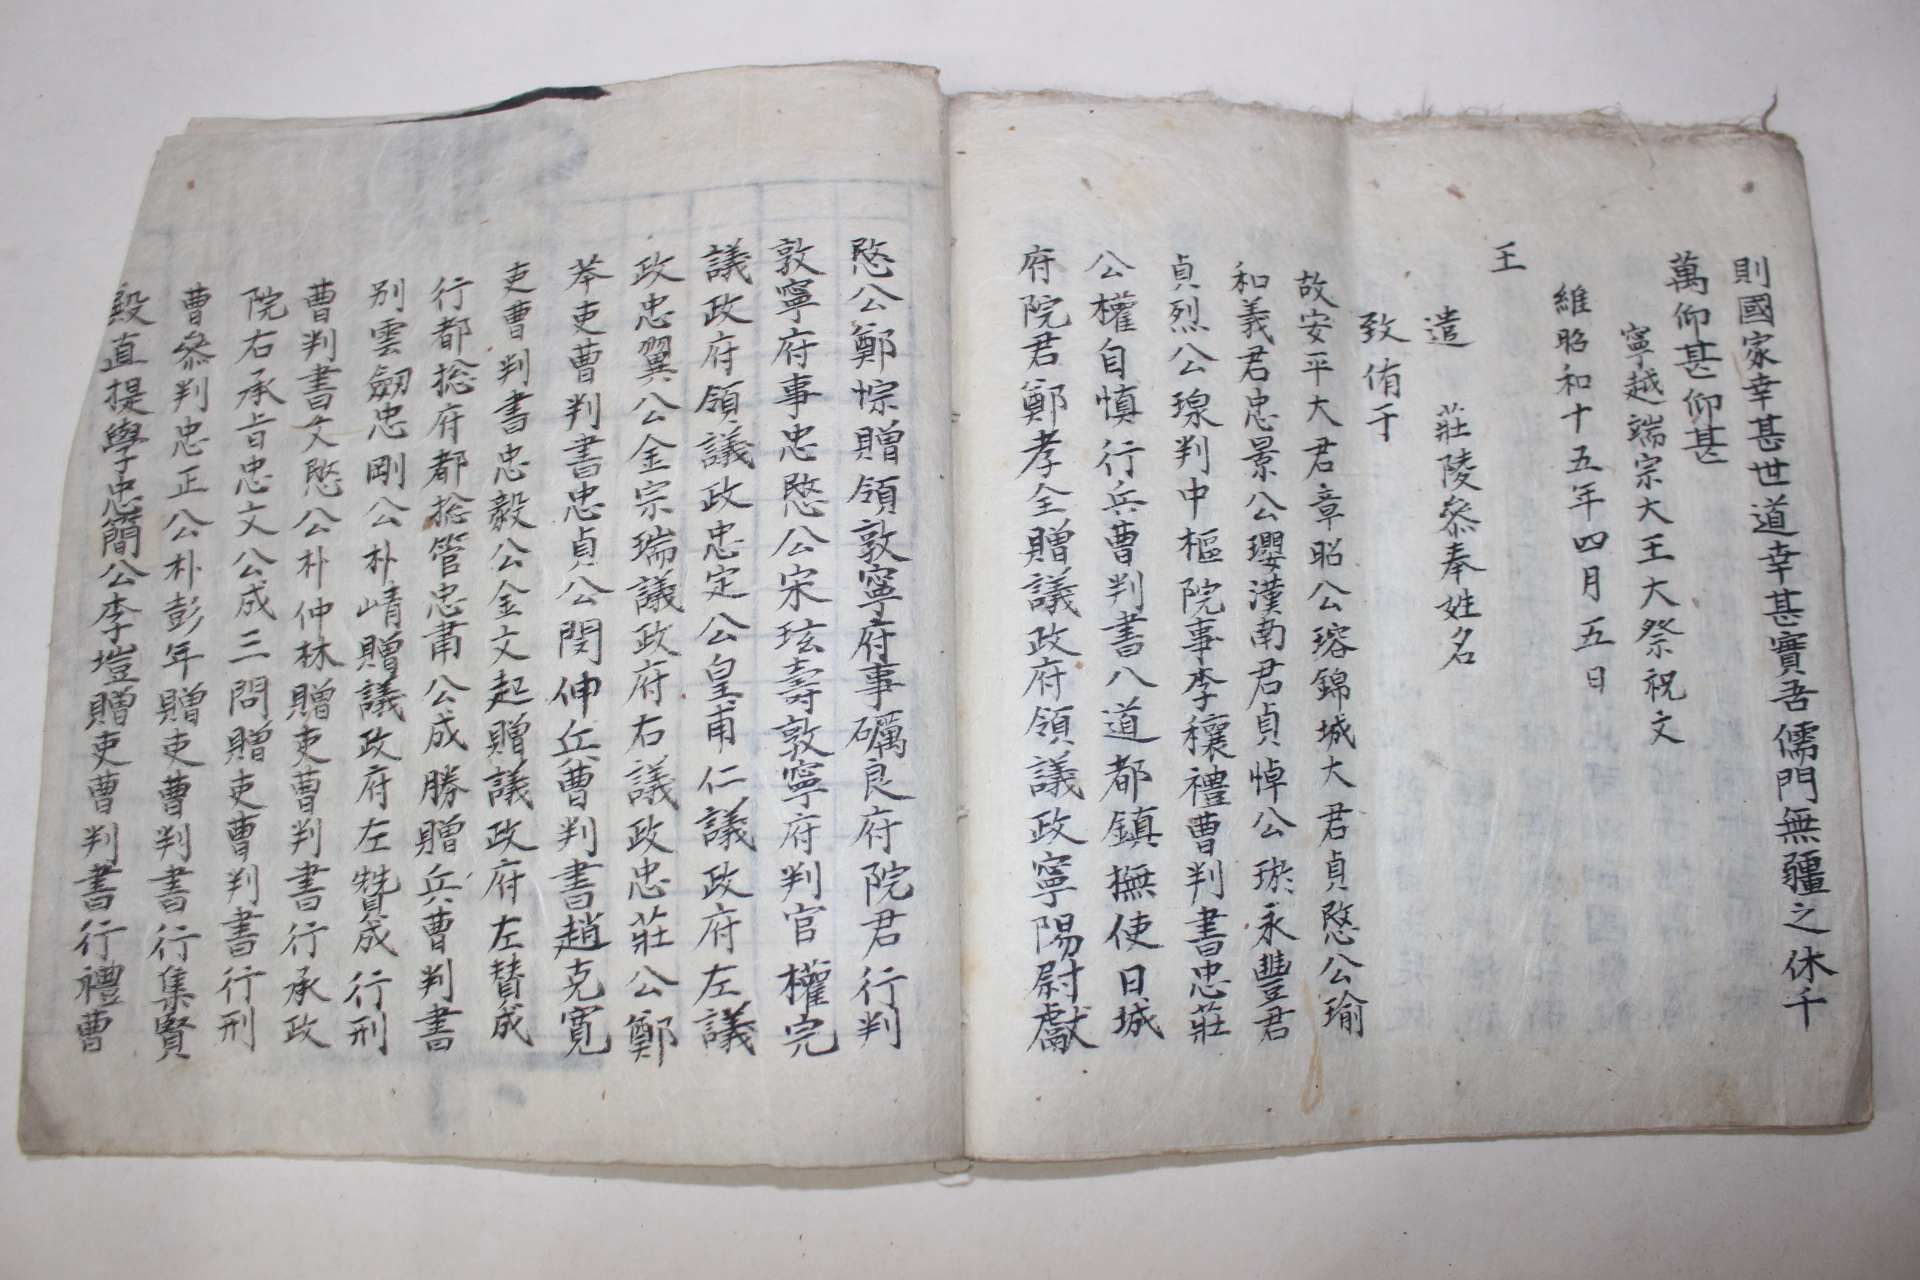 則國家幸甚世道幸甚實吾儒門無疆之休千
萬仰甚仰甚
寧越端宗大王大祭祝文
維昭和十五年四月五日
王
遣 莊陵參奉姓名
致侑于
故安平大君章昭公瑢錦城大君貞愍公瑜
和義君忠景公瓔漢南君貞悼公𤥽永豐君
貞烈公瑔判中樞院事李穰禮曹判書忠莊
公權自愼行兵曹判書八道都鎮撫使日城
府院君鄭孝全贈議政府領議政寧陽尉獻
愍公鄭悰贈領敦寧府事礪良府院君行判
敦寧府事忠愍公宋玹壽敦寧府判官權完
議政府領議政忠定公皇甫仁議政府左議
政忠翼公金宗瑞議政府右議政忠莊公鄭
苯吏曹判書忠貞公閔伸兵曹判書趙克寬
吏曹判書忠毅公金文起贈議政府左贊成
行都捴府都捴管忠肅公成勝贈兵曹判書
別雲劒忠剛公朴崝贈議政府左贊成行刑
曹判書文愍公朴仲林贈吏曹判書行承政
院右承旨忠文公成三問贈吏曹判書行刑
曹參判忠正公朴彭年贈吏曹判書行集賢
殿直提學忠簡公李塏贈吏曹判書行禮曹